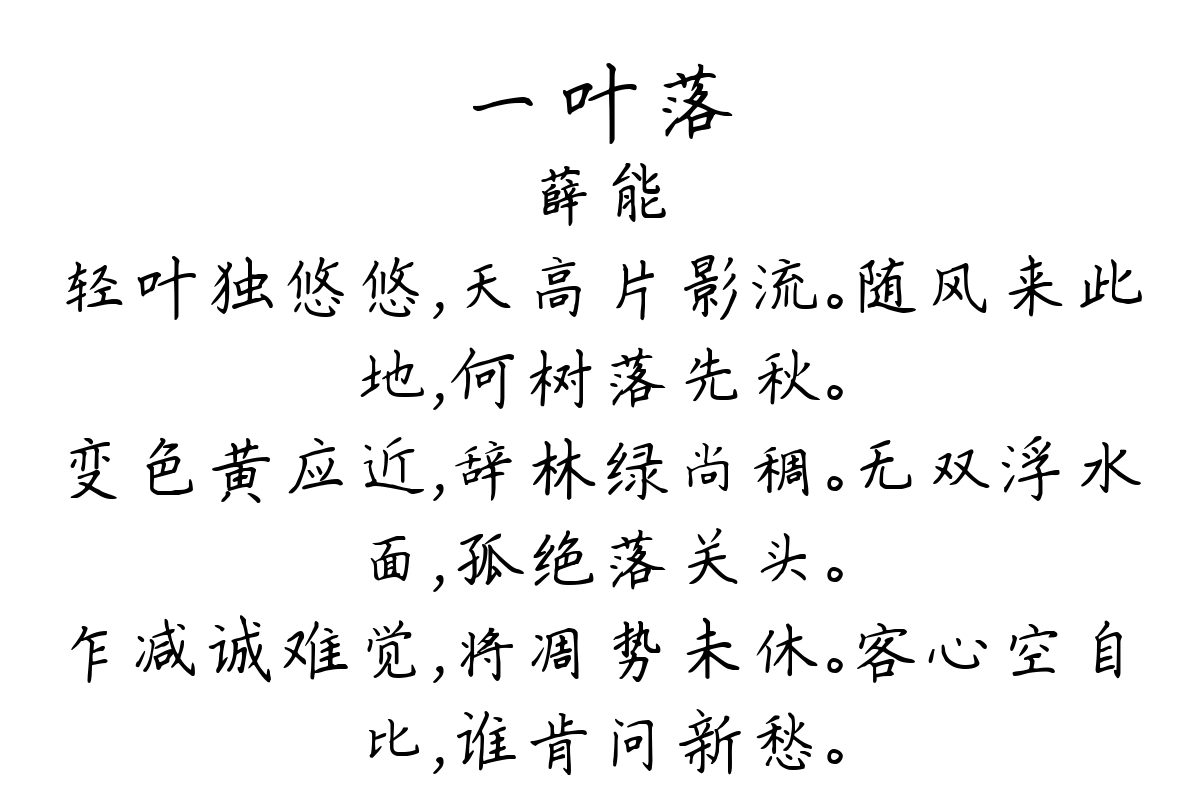 一叶落
薛能
轻叶独悠悠,天高片影流。随风来此
地,何树落先秋。
变色黄应近,辞林绿尚稠。无双浮水
面,孤绝落关头。
乍减诚难觉,将凋势未休。客心空自
比,谁肯问新愁。